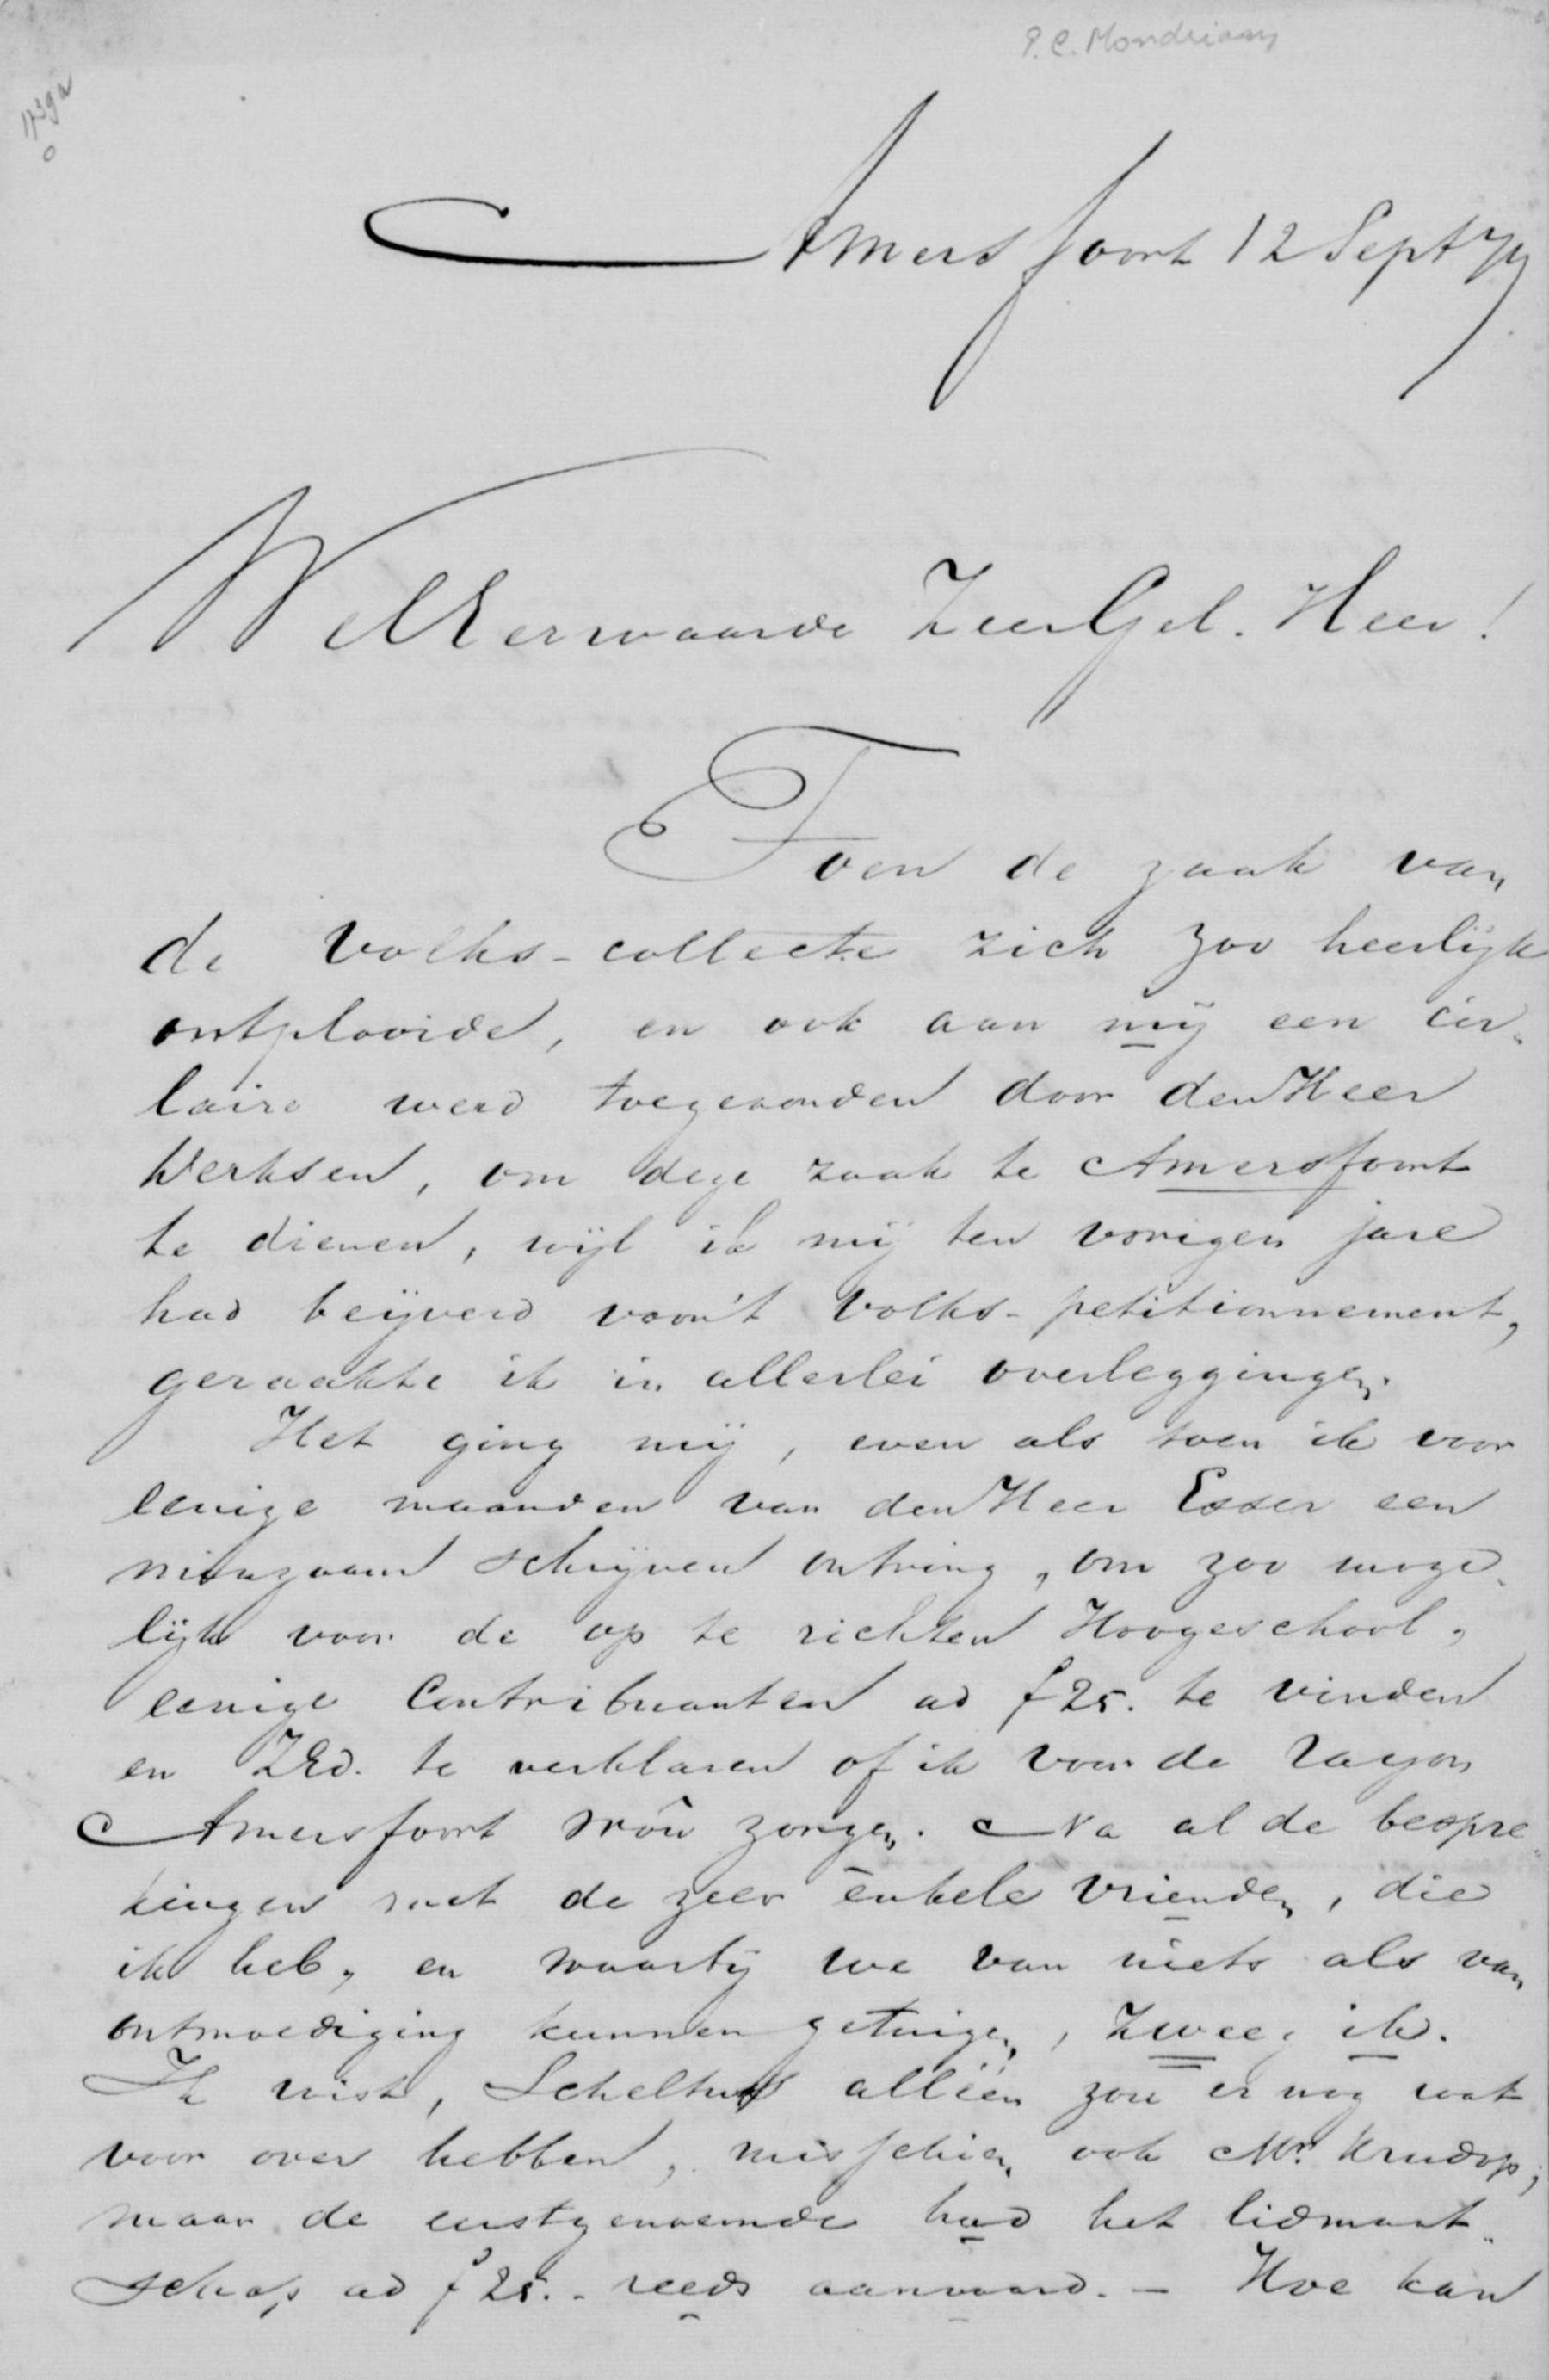 P. C. Mondriaan
1739a
Amersfoort 12 Sept 79
WelEerwaarde ZeerGel. Heer!
Toen de zaak van
de Volks-collecte zich zoo heerlijk
ontplooide, en ook aan mij een cir-
laire werd toegezonden door den Heer
Derksen, om deze zaak te Amersfoort
te dienen, wijl ik mij ten vorigen jare
had beijverd voor't Volks-petitionnement,
geraakte ik in allerlei overleggingen.
Het ging mij, even als toen ik voor
eenige maanden van den Heer Esser een
minzaam schrijven ontving, om zoo moge-
lijk voor de op te richten Hoogeschool,
eenige Contribuanten ad f 25. te vinden
en ZEd. te verklaren of ik voor de rayon
Amersfoort wou zorgen. Na al de bespre-
kingen met de zeer enkele vrienden, die
ik heb, en waarbij we van niets als van
ontmoediging kunnen getuigen, zweeg ik.
Ik wist, Scheltus alléén zou er nog wat
voor over hebben, misschien ook Mr. Krudop;
maar de eerstgenoemde had het lidmaat-
schap ad f 25.- reeds aanvaard. - Hoe kan